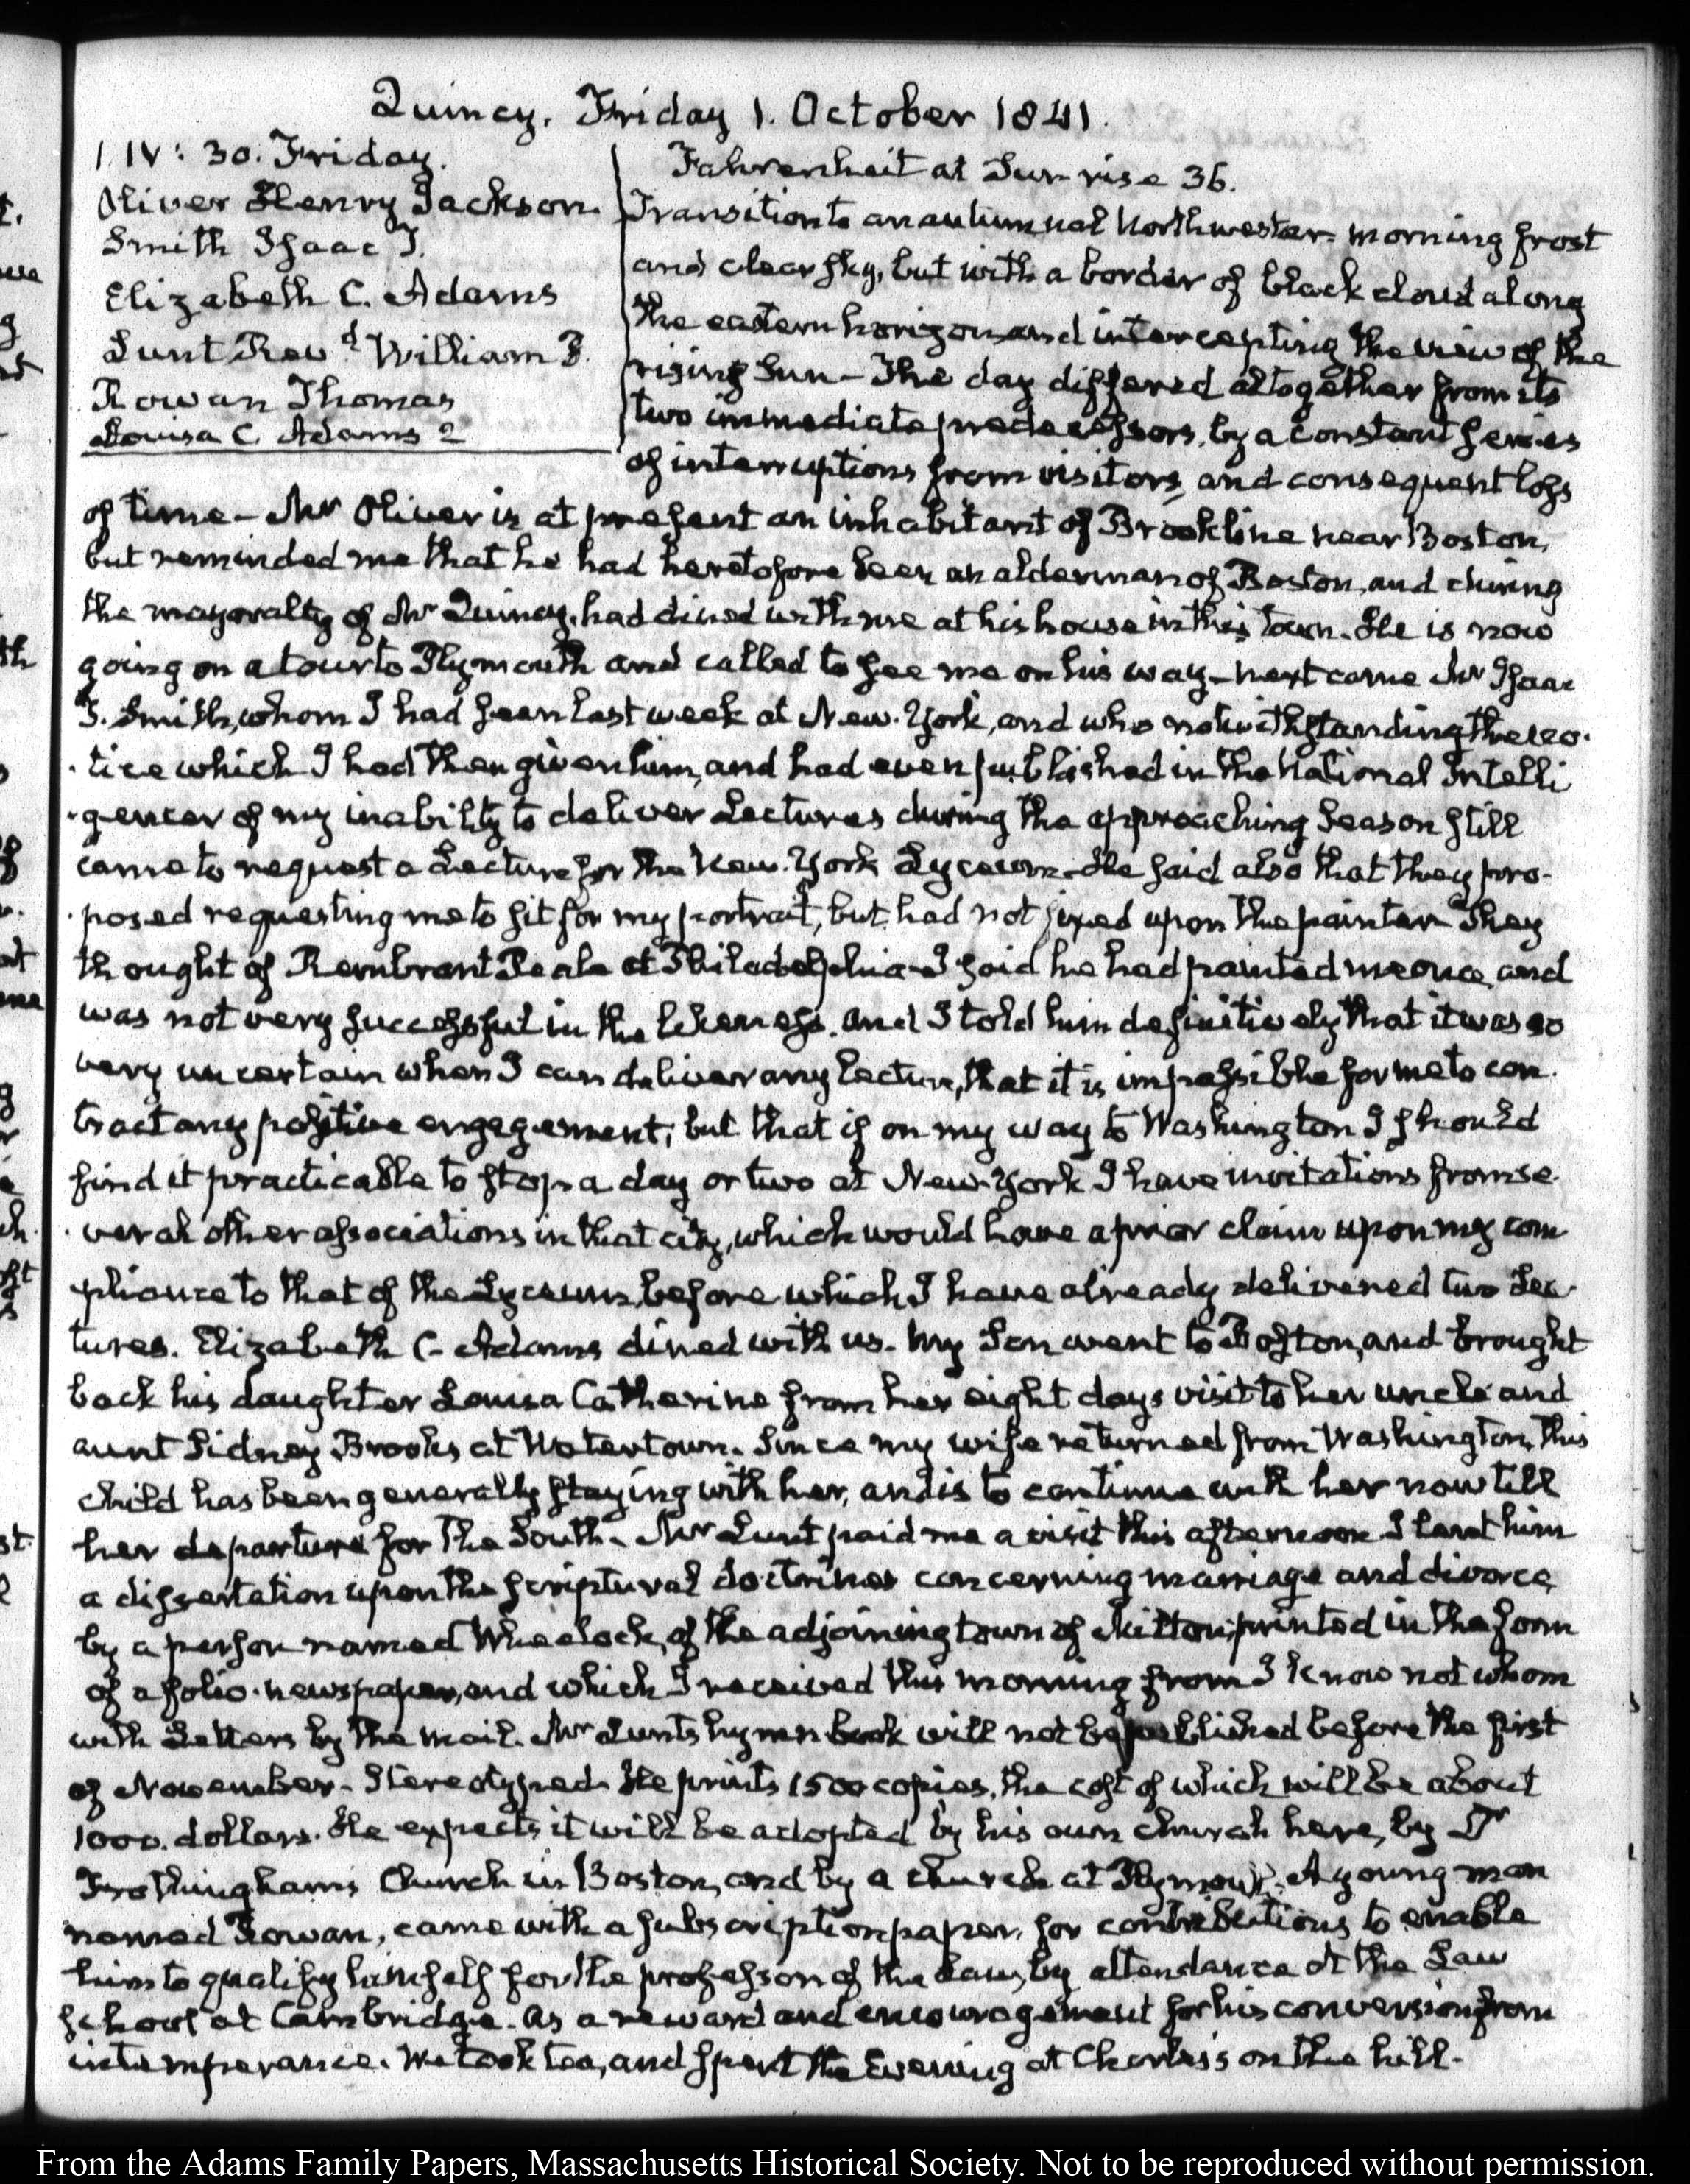 Quincy. Friday 1. October 1841.
1 IV: 30. Friday.
Oliver Henry Jackson.
Smith Isaac T.
Elizabeth C. Adams
Lunt Revd William P.
Rowan Thomas
Louisa C Adams 2
Fahrenheit at Sun-rise 36.
Transition to an autumnal Northwester. morning frost
and clear sky, but with a border of black cloud along
the eastern horizon and intercepting the view of the
rising Sun — The day differed altogether from its
two immediate predecessors, by a constant series
of interruptions from visitors, and consequent loss
of time — Mr Oliver is at present an inhabitant of Brookline near Boston,
but reminded me that he had heretofore been an alderman of Boston, and during
the mayoralty of Mr Quincy, had dined with me at his house in this town. He is now
going on a tour to Plymouth and called to see me on his way — next came Mr Isaac
T. Smith, whom I had seen last week at New-York, and who notwithstanding the no-
tice which I had then given him, and had even published in the National Intelli
gencer of my inability to deliver Lectures during the approaching Season still
came to request a Lecture for the New-York Lyceum — He said also that they pro-
posed requesting me to sit for my portrait, but had not fixed upon the painter They
thought of Rembrant Peale at Philadelphia — I said he had painted me once, and
was not very successful in the likeness. and I told him definitively that it was so
very uncertain when I can deliver any lecture, that it is impossible for me to con-
tract any positive engagement; but that if on my way to Washington I should
find it practicable to stop a day or two at New-York I have invitations from se-
veral other associations in that city, which would have a prior claim upon my com
pliance to that of the Lyceum, before which I have already delivered two Lec-
tures. Elizabeth C. Adams dined with us. My Son went to Boston, and brought
back his daughter Louisa Catherine from her eight days visit to her uncle and
aunt Sidney Brooks at Watertown. Since my wife returned from Washington, this
child has been generally staying with her, and is to continue with her now till
her departure for the South. Mr Lunt paid me a visit this afternoon I lent him
a dissertation upon the scriptural doctrines concerning marriage and divorce,
by a person named Wheelock, of the adjoining town of Milton; printed in the form
of a folio newspaper, and which I received this morning from I know not whom
with Letters by the mail. Mr Lunts hymn book will not be published before the first
of November. Stereotyped. He prints 1500 copies, the cost of which will be about
1000. dollars. He expects it will be adopted by his own church here, by Dr
Frothinghams Church in Boston, and by a church at Plymouth. A young man
named Rowan, came with a subscription paper, for contributions to enable
him to qualify himself for the profession of the Law, by attendance at the Law
school at Cambridge. as a reward and encouragement for his conversion from
intemperance. We took tea, and spent the Evening at Charles's on the hill.
From the Adams Family Papers, Massachusetts Historical Society. Not to be reproduced without permission.